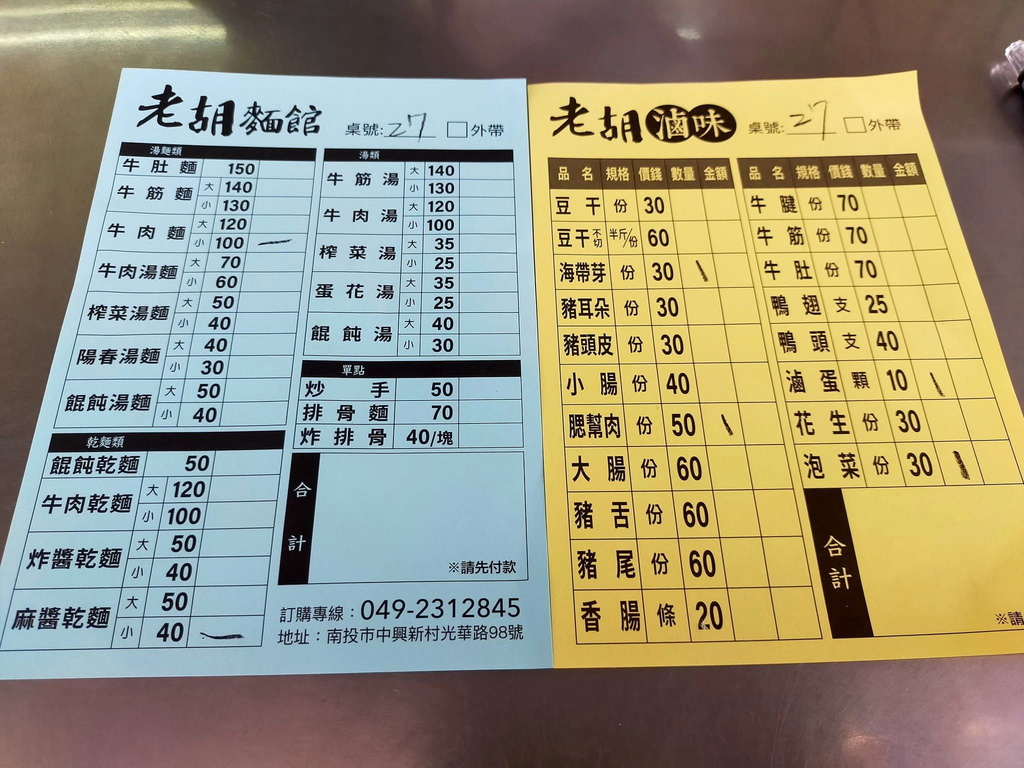 老胡麵館 桌號: 27 □外帶
湯麵類
牛肚麵 150
牛筋麵 大 140
小 130
牛肉麵 大 120
小 100 一
牛肉湯麵 大 70
小 60
榨菜湯麵 大 50
小 40
陽春湯麵 大 40
小 30
餛飩湯麵 大 50
小 40
乾麵類
餛飩乾麵 50
牛肉乾麵 大 120
小 100
炸醬乾麵 大 50
小 40
麻醬乾麵 大 50
小 40 一
湯類
牛筋湯 大 140
小 130
牛肉湯 大 120
小 100
榨菜湯 大 35
小 25
蛋花湯 大 35
小 25
餛飩湯 大 40
小 30
單點
炒手 50
排骨麵 70
炸排骨 40/塊
合計
※請先付款
訂購專線：049-2312845
地址：南投市中興新村光華路98號
老胡滷味 桌號: 27 □外帶
品名 規格 價錢 數量 金額
豆干 份 30
豆干不切 半斤/份 60
海帶芽 份 30 \
豬耳朵 份 30
豬頭皮 份 30
小腸 份 40
腮幫肉 份 50 \
大腸 份 60
豬舌 份 60
豬尾 份 60
香腸 條 20
品名 規格 價錢 數量 金額
牛腱 份 70
牛筋 份 70
牛肚 份 70
鴨翅 支 25
鴨頭 支 40
滷蛋 顆 10 \
花生 份 30
泡菜 份 30 \
合計
※請